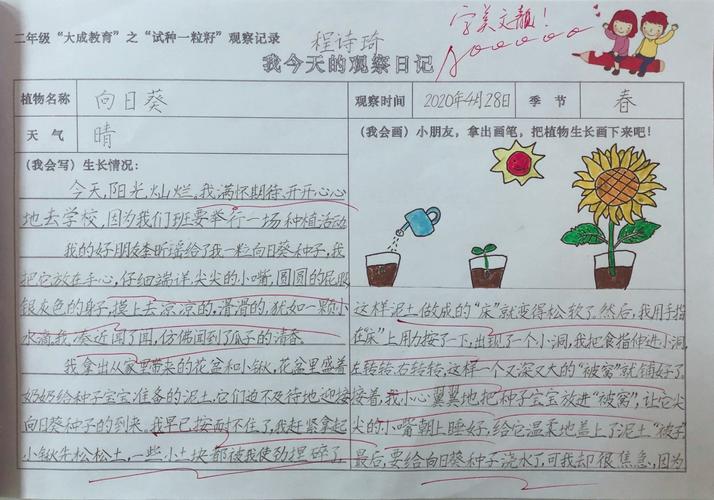 二年级“大成教育”之“试种一粒籽”观察记录
程诗琦
字美文靓！
我今天的观察日记
植物名称 向日葵 观察时间 2020年4月28日 季节 春
天气 晴
(我会写)生长情况：
今天,阳光灿烂。我满怀期待,开开心心
地去学校,因为我们班要举行一场种植活动
我的好朋友李昕瑶给了我一粒向日葵种子,我
把它放在手心,仔细端详,尖尖的小嘴,圆圆的屁股
银灰色的身子,摸上去凉凉的,滑滑的,犹如一颗小
水滴。我凑近闻了闻,仿佛闻到了瓜子的清香。
我拿出从家里带来的花盆和小锹,花盆里盛着
奶奶给种子宝宝准备的泥土,它们迫不及待地迎接
向日葵种子的到来。我早已按耐不住了,我赶紧拿起
小锹先松松土,一些小土块都被我使劲捏碎了
(我会画)小朋友，拿出画笔，把植物生长画下来吧！
这样泥土做成的“床”就变得松软了。然后,我用手指
在“床”上用力按了一下,出现了一个小洞,我把食指伸进小洞
左转转,右转转,这样一个又深又大的“被窝”就铺好了
接着,我小心翼翼地把种子宝宝放进“被窝”,让它尖
尖的小嘴朝上睡好,给它温柔地盖上了泥土“被子”
最后,要给向日葵种子浇水了,可我却很焦急,因为